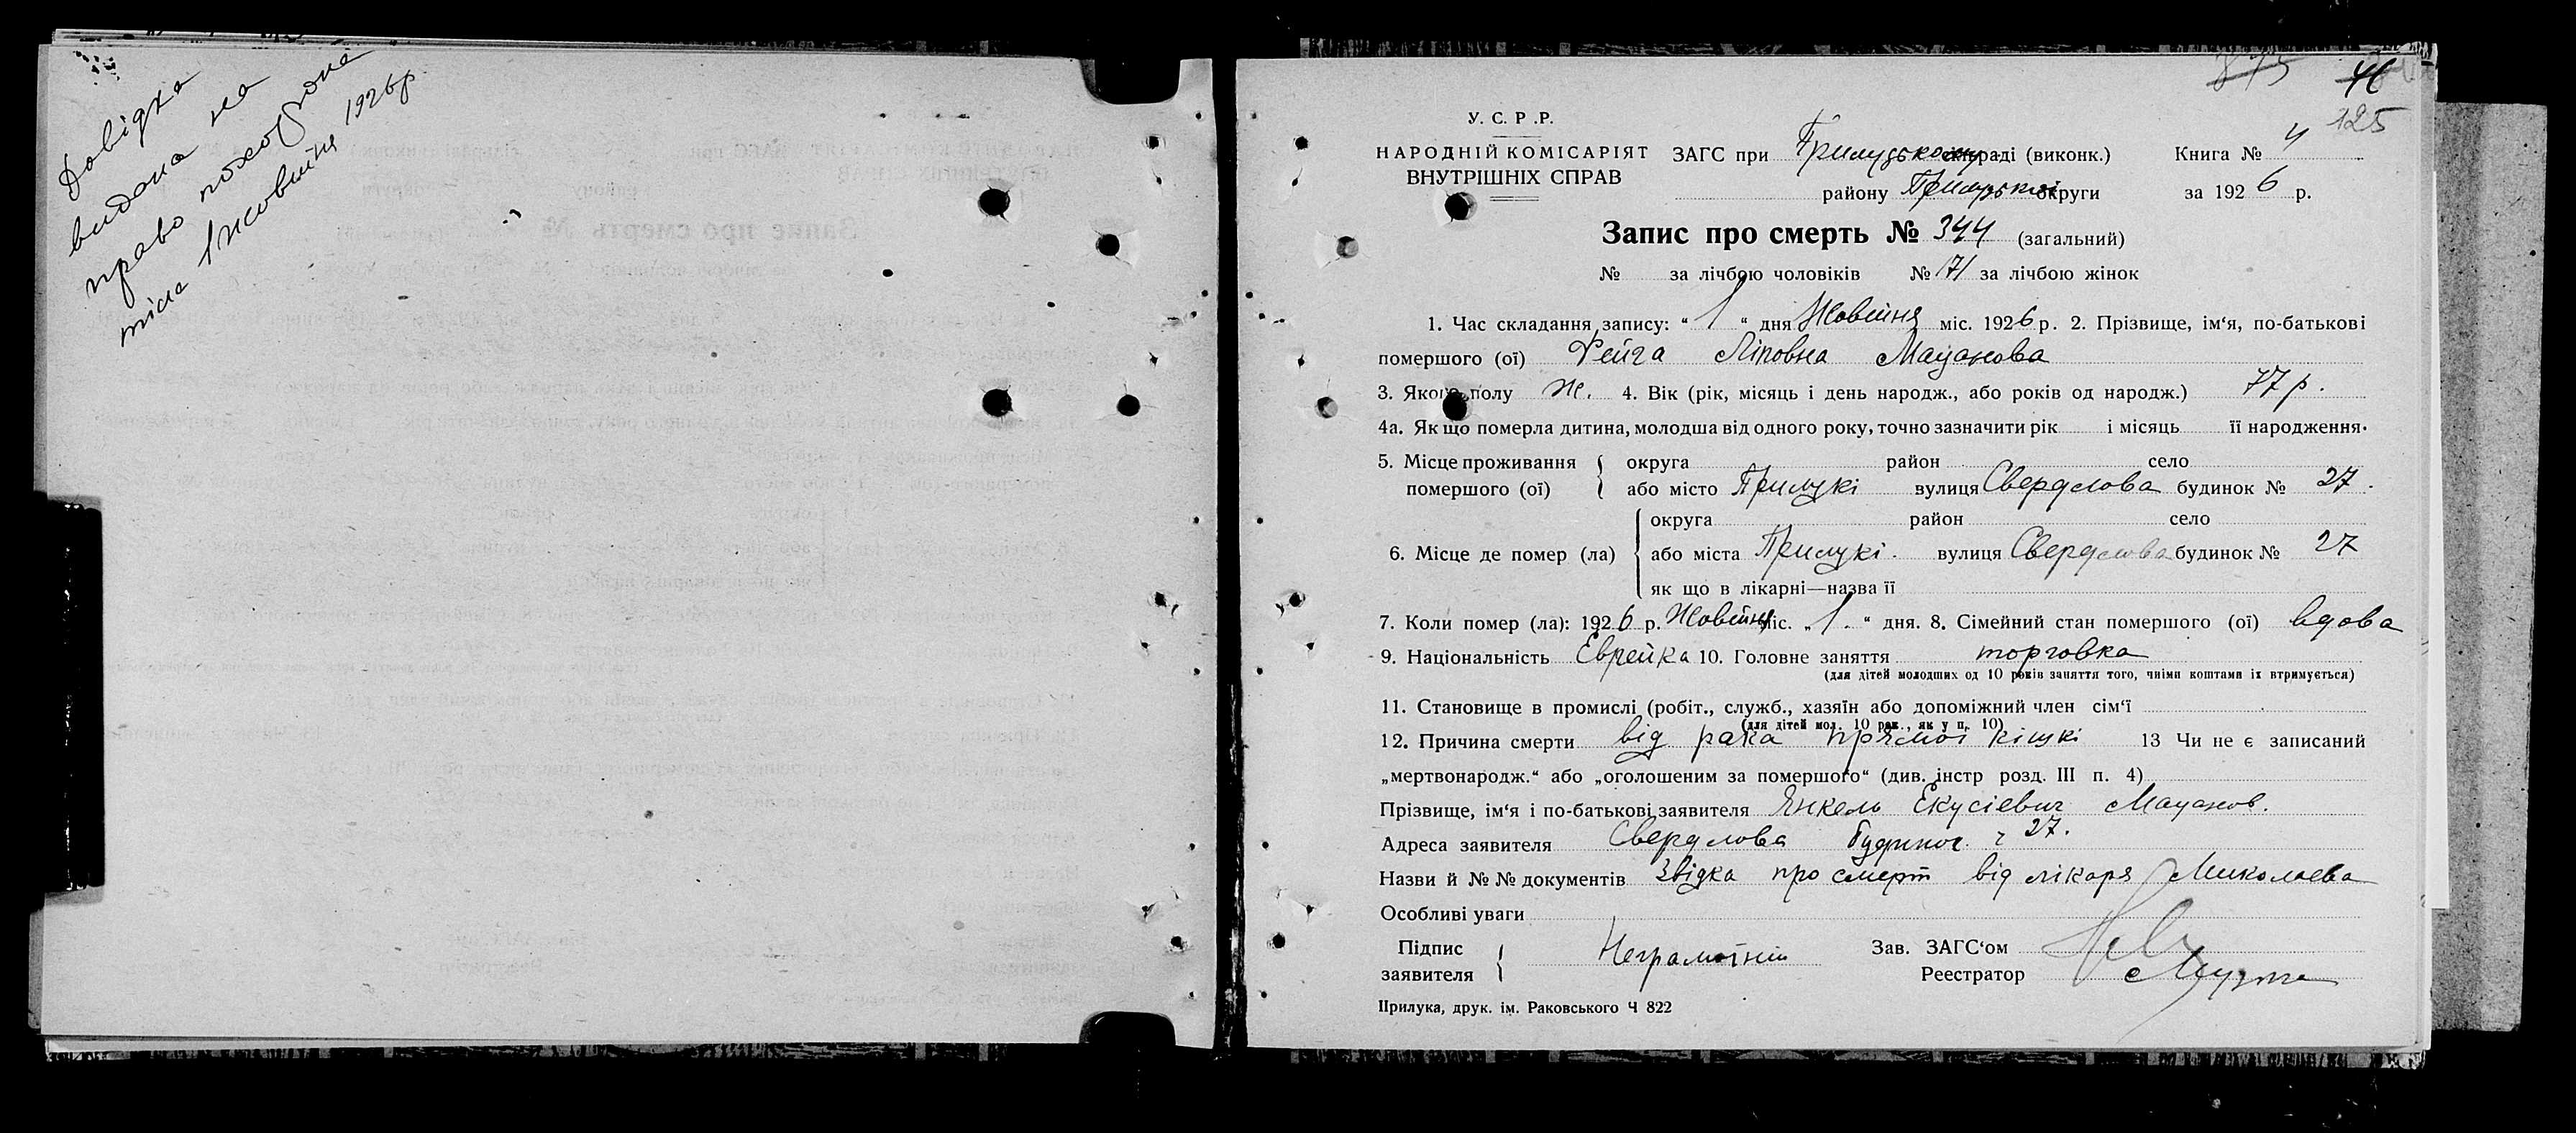 Довідка
видана на
право похорона
тіла 1 жовтня 1926 р
46
125
У. С. Р. Р.
НАРОДНІЙ КОМІСАРІЯТ
ВНУТРІШНІХ СПРАВ
ЗАГС при Прилуцькому раді (виконк.) Книга № 4
району Прилуцької округи за 1926 р.
Запис про смерть № 344 (загальний)
№ за лічбою чоловіків № 171 за лічбою жінок
1. Час складання запису: “ 1 “ дня Жовтня міс. 1926 р. 2. Прізвище, ім‘я, по-батькові
помершого (ої) Фейга Ліповна Мацакова
3. Якого полу Ж. 4. Вік (рік, місяць і день народж., або років од народж.) 77 р.
4а. Як що померла дитина, молодша від одного року, точно зазначити рік і місяць її народження.
5. Місце проживання помершого (ої) { округа район село
або місто Прилукі вулиця Свердлова будинок № 27.
6. Місце де помер (ла) { округа район село
або міста Прилукі. вулиця Свердлова будинок № 27
як що в лікарні—назва її
7. Коли помер (ла): 1926 р. Жовтня міс. „ 1. “ дня. 8. Сімейний стан помершого (ої) вдова
9. Національність Еврейка 10. Головне заняття торговка
(для дітей молодших од 10 років заняття того, чиїми коштами їх втримується)
11. Становище в промислі (робіт., служб., хазяїн або допоміжний член сім‘ї
(для дітей мол. 10 рок., як у п. 10)
12. Причина смерти від рака прямої кішкі 13 Чи не є записаний
„мертвонародж.“ або „оголошеним за помершого“ (див. інстр розд. III п. 4)
Прізвище, ім‘я і по-батькові заявителя Янкель Екусіевич Мацаков.
Адреса заявителя Свердлова будинок ч 27.
Назви й № № документів Звідка про смерт від лікаря Миколаева
Особливі уваги
Підпис заявителя { Неграмотній
Зав. ЗАГС‘ом
Реестратор
Прилука, друк. ім. Раковського Ч 822